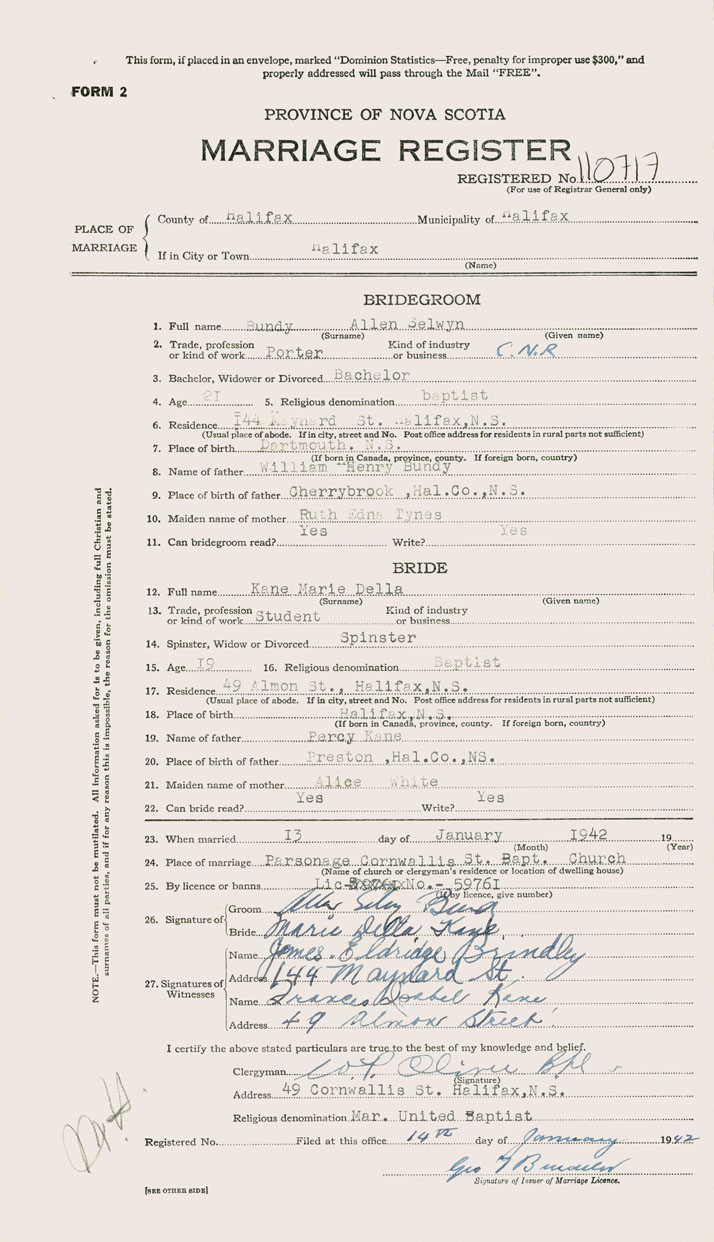 This form, if placed in an envelope, marked "Dominion Statistics—Free, penalty for improper use $300," and
properly addressed will pass through the Mail "FREE".
FORM 2
PROVINCE OF NOVA SCOTIA
MARRIAGE REGISTER
REGISTERED No. 110717
(For use of Registrar General only)
PLACE OF MARRIAGE
County of Halifax Municipality of Halifax
If in City or Town Halifax
(Name)
BRIDEGROOM
1. Full name Bundy Allen Selwyn
(Surname) (Given name)
2. Trade, profession or kind of work Porter Kind of industry or business C.N.R
3. Bachelor, Widower or Divorced Bachelor
4. Age 2I 5. Religious denomination baptist
6. Residence I44 Maynard St. Halifax,N.S.
(Usual place of abode. If in city, street and No. Post office address for residents in rural parts not sufficient)
7. Place of birth Dartmouth. N.S.
(If born in Canada, province, county. If foreign born, country)
8. Name of father William Henry Bundy
9. Place of birth of father Cherrybrook ,Hal.Co.,N.S.
10. Maiden name of mother Ruth Edna Tynes
11. Can bridegroom read? Yes Write? Yes
BRIDE
12. Full name Kane Marie Della
(Surname) (Given name)
13. Trade, profession or kind of work Student Kind of industry or business
14. Spinster, Widow or Divorced Spinster
15. Age I9 16. Religious denomination Baptist
17. Residence 49 Almon St., Halifax,N.S.
(Usual place of abode. If in city, street and No. Post office address for residents in rural parts not sufficient)
18. Place of birth Halifax,N.S.
(If born in Canada, province, county. If foreign born, country)
19. Name of father Percy Kane
20. Place of birth of father Preston ,Hal.Co.,NS.
21. Maiden name of mother Alice White
22. Can bride read? Yes Write? Yes
23. When married I3 day of January I942 19
(Month) (Year)
24. Place of marriage Parsonage Cornwallis St. Bapt. Church
(Name of church or clergyman's residence or location of dwelling house)
25. By licence or banns Lic No.- 5976I
(If by licence, give number)
26. Signature of
Groom Allen Selwyn Bundy
Bride Marie Della Kane
27. Signatures of Witnesses
Name James Eldridge Brindley
Address 144 Maynard St.
Name Frances Isabel Kane
Address 49 Almon Street
I certify the above stated particulars are true to the best of my knowledge and belief.
Clergyman W.P. Oliver
(Signature)
Address 49 Cornwallis St. Halifax,N.S.
Religious denomination Mar. United Baptist
Registered No. Filed at this office 14th day of January 1942
Geo
Signature of Issuer of Marriage Licence.
[SEE OTHER SIDE]
NOTE.—This form must not be mutilated. All information asked for is to be given, including full Christian and
surnames of all parties, and if for any reason this is impossible, the reason for the omission must be stated.